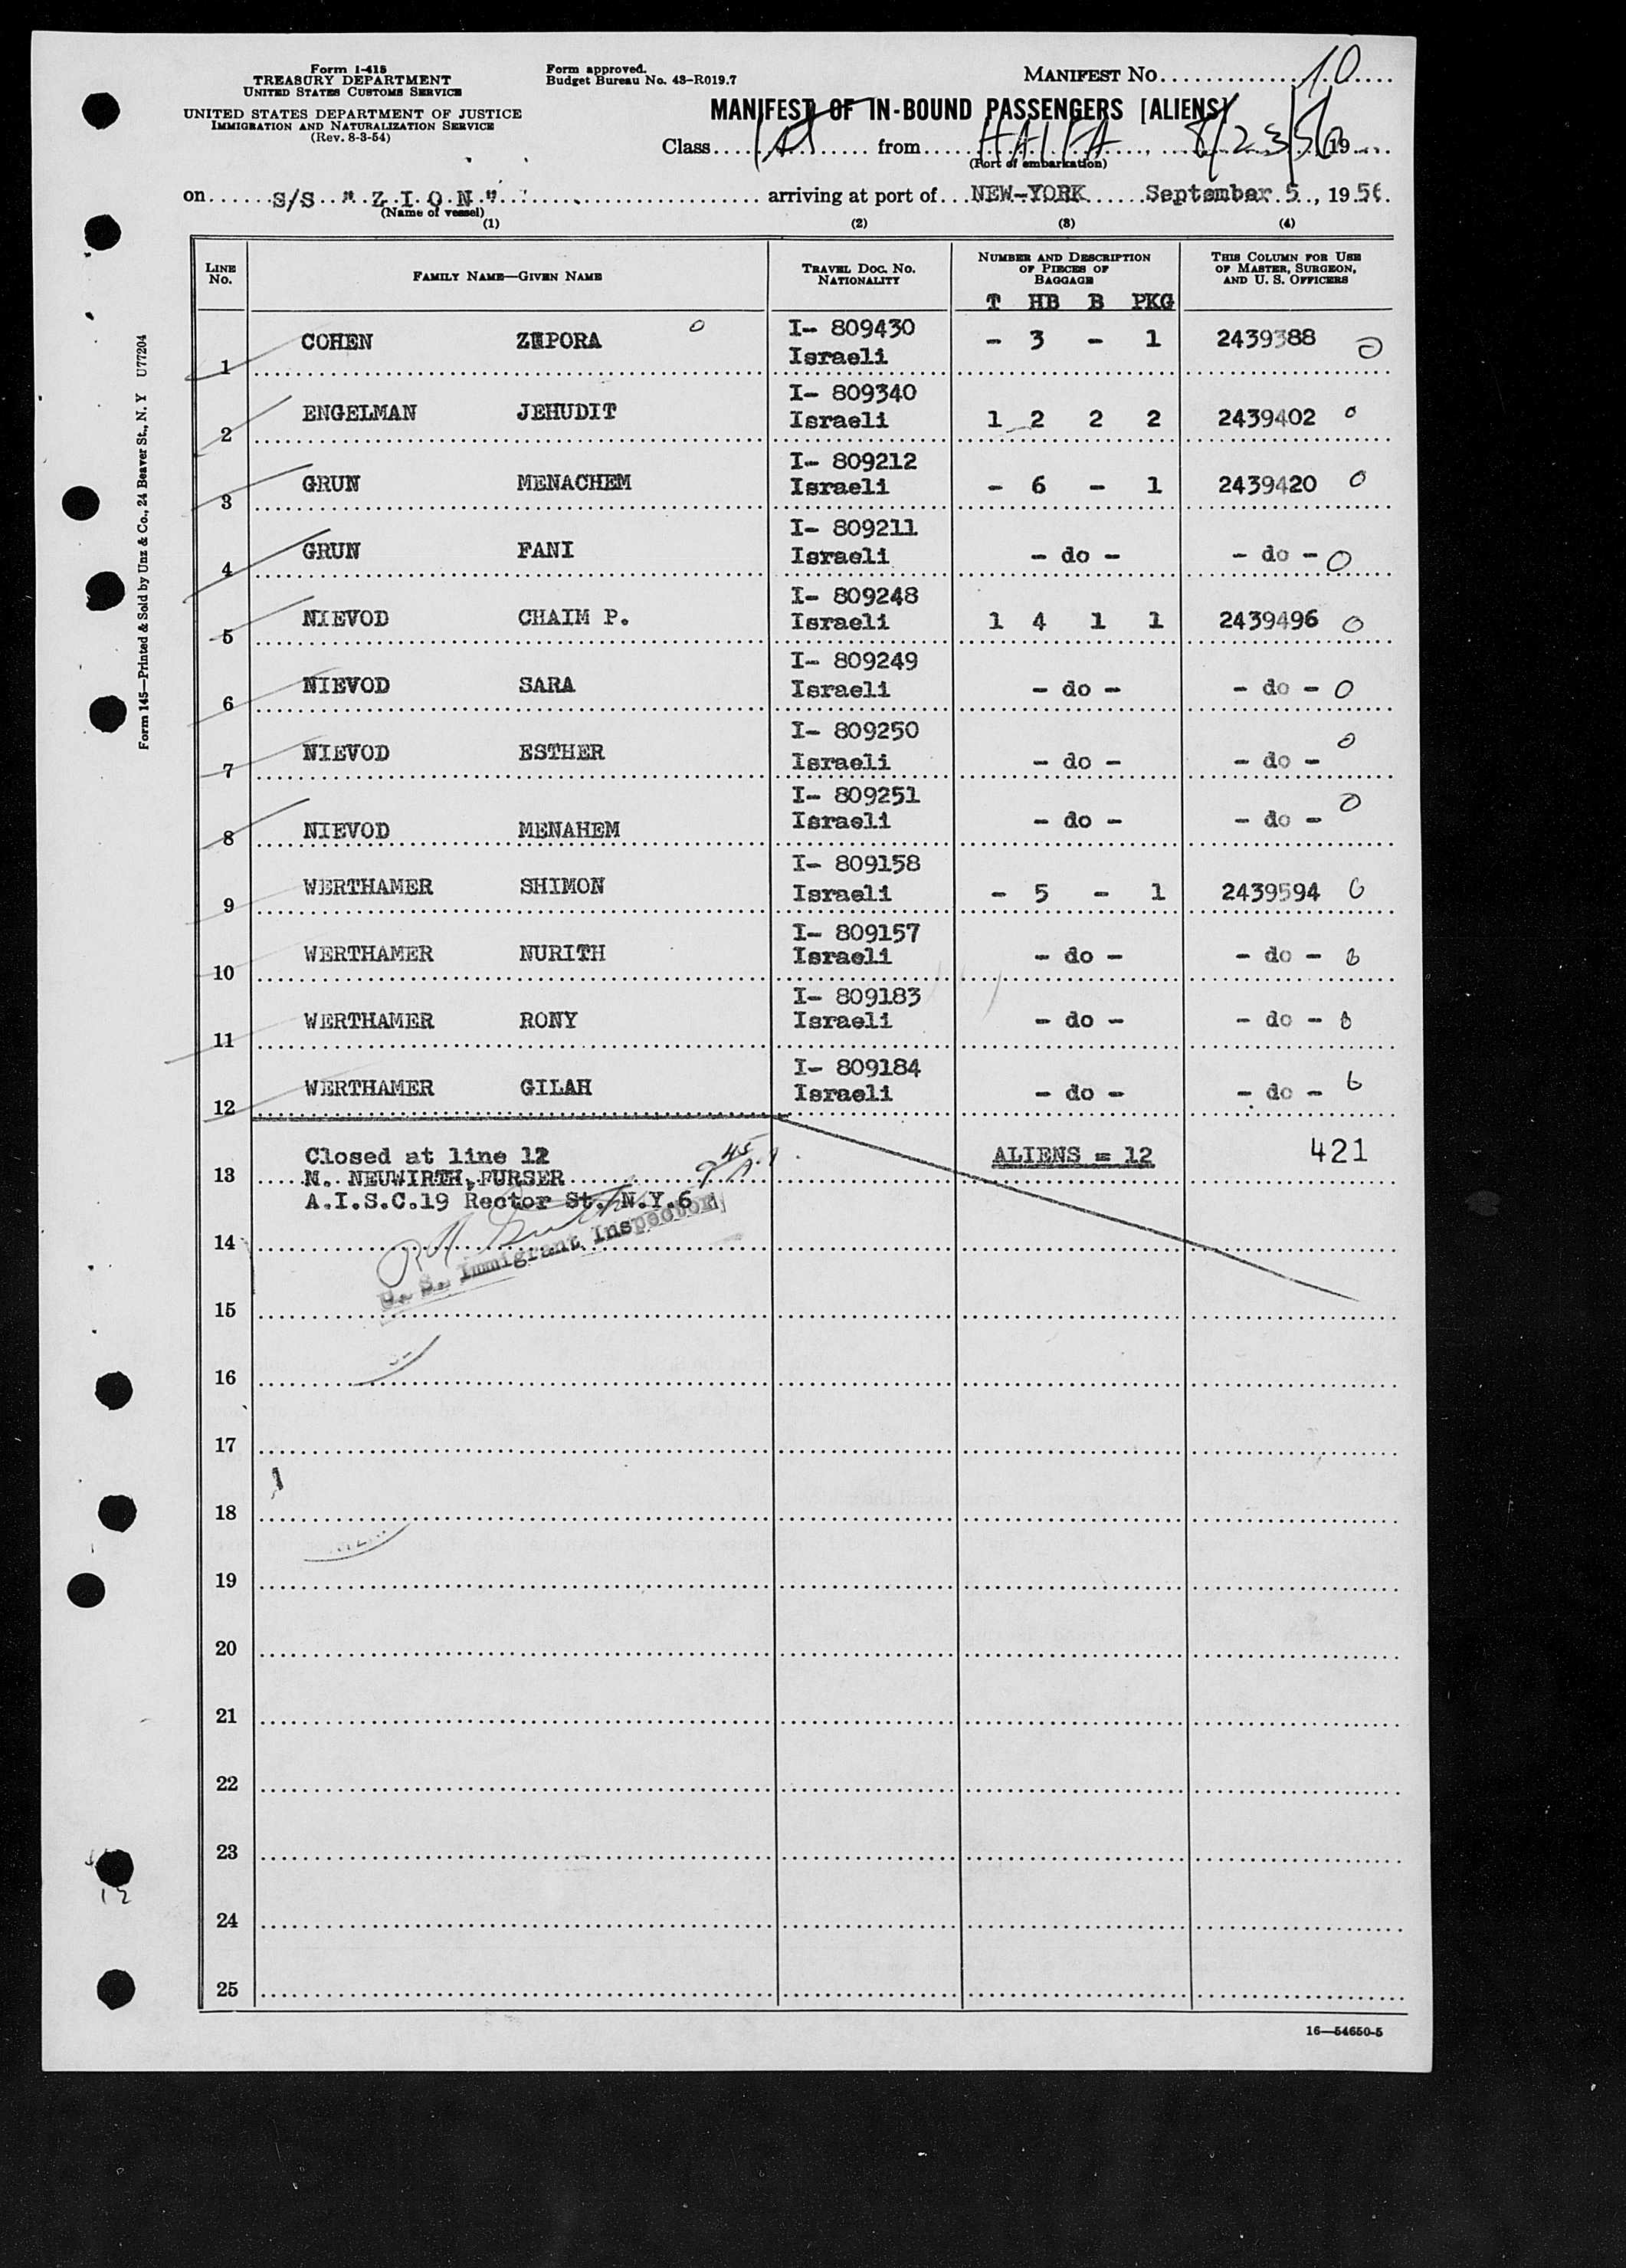 Form I-415
TREASURY DEPARTMENT
UNITED STATES CUSTOMS SERVICE
UNITED STATES DEPARTMENT OF JUSTICE
IMMIGRATION AND NATURALIZATION SERVICE
(Rev. 8-3-54)
Form approved.
Budget Bureau No. 43-R019.7
MANIFEST No. 10
MANIFEST OF IN-BOUND PASSENGERS [ALIENS]
Class 1st from HAIFA, 8/23/56 19
(Port of embarkation)
on S/S "Z.I.O.N." arriving at port of NEW-YORK September 5, 1956.
(Name of vessel)
(1) (2) (3) (4)
LINE No. FAMILY NAME—GIVEN NAME TRAVEL DOC. No. NATIONALITY NUMBER AND DESCRIPTION OF PIECES OF BAGGAGE THIS COLUMN FOR USE OF MASTER, SURGEON, AND U. S. OFFICERS
T HB B PKG
1 COHEN ZIPORA I- 809430 Israeli - 3 - 1 2439388
2 ENGELMAN JEHUDIT I- 809340 Israeli 1 2 2 2 2439402
3 GRUN MENACHEM I- 809212 Israeli - 6 - 1 2439420
4 GRUN FANI I- 809211 Israeli - do - - do -
5 NIEVOD CHAIM P. I- 809248 Israeli 1 4 1 1 2439496
6 NIEVOD SARA I- 809249 Israeli - do - - do -
7 NIEVOD ESTHER I- 809250 Israeli - do - - do -
8 NIEVOD MENAHEM I- 809251 Israeli - do - - do -
9 WERTHAMER SHIMON I- 809158 Israeli - 5 - 1 2439594
10 WERTHAMER NURITH I- 809157 Israeli - do - - do -
11 WERTHAMER RONY I- 809183 Israeli - do - - do -
12 WERTHAMER GILAH I- 809184 Israeli - do - - do -
Closed at line 12 ALIENS = 12 421
13 N. NEUWIRTH, PURSER
A.I.S.C.19 Rector St. N.Y.6
14
U. S. Immigrant Inspector
15
16
17
18
19
20
21
22
23
24
25
16—54650-5
Form 145—Printed & Sold by Unz & Co., 24 Beaver St., N. Y U77204
12